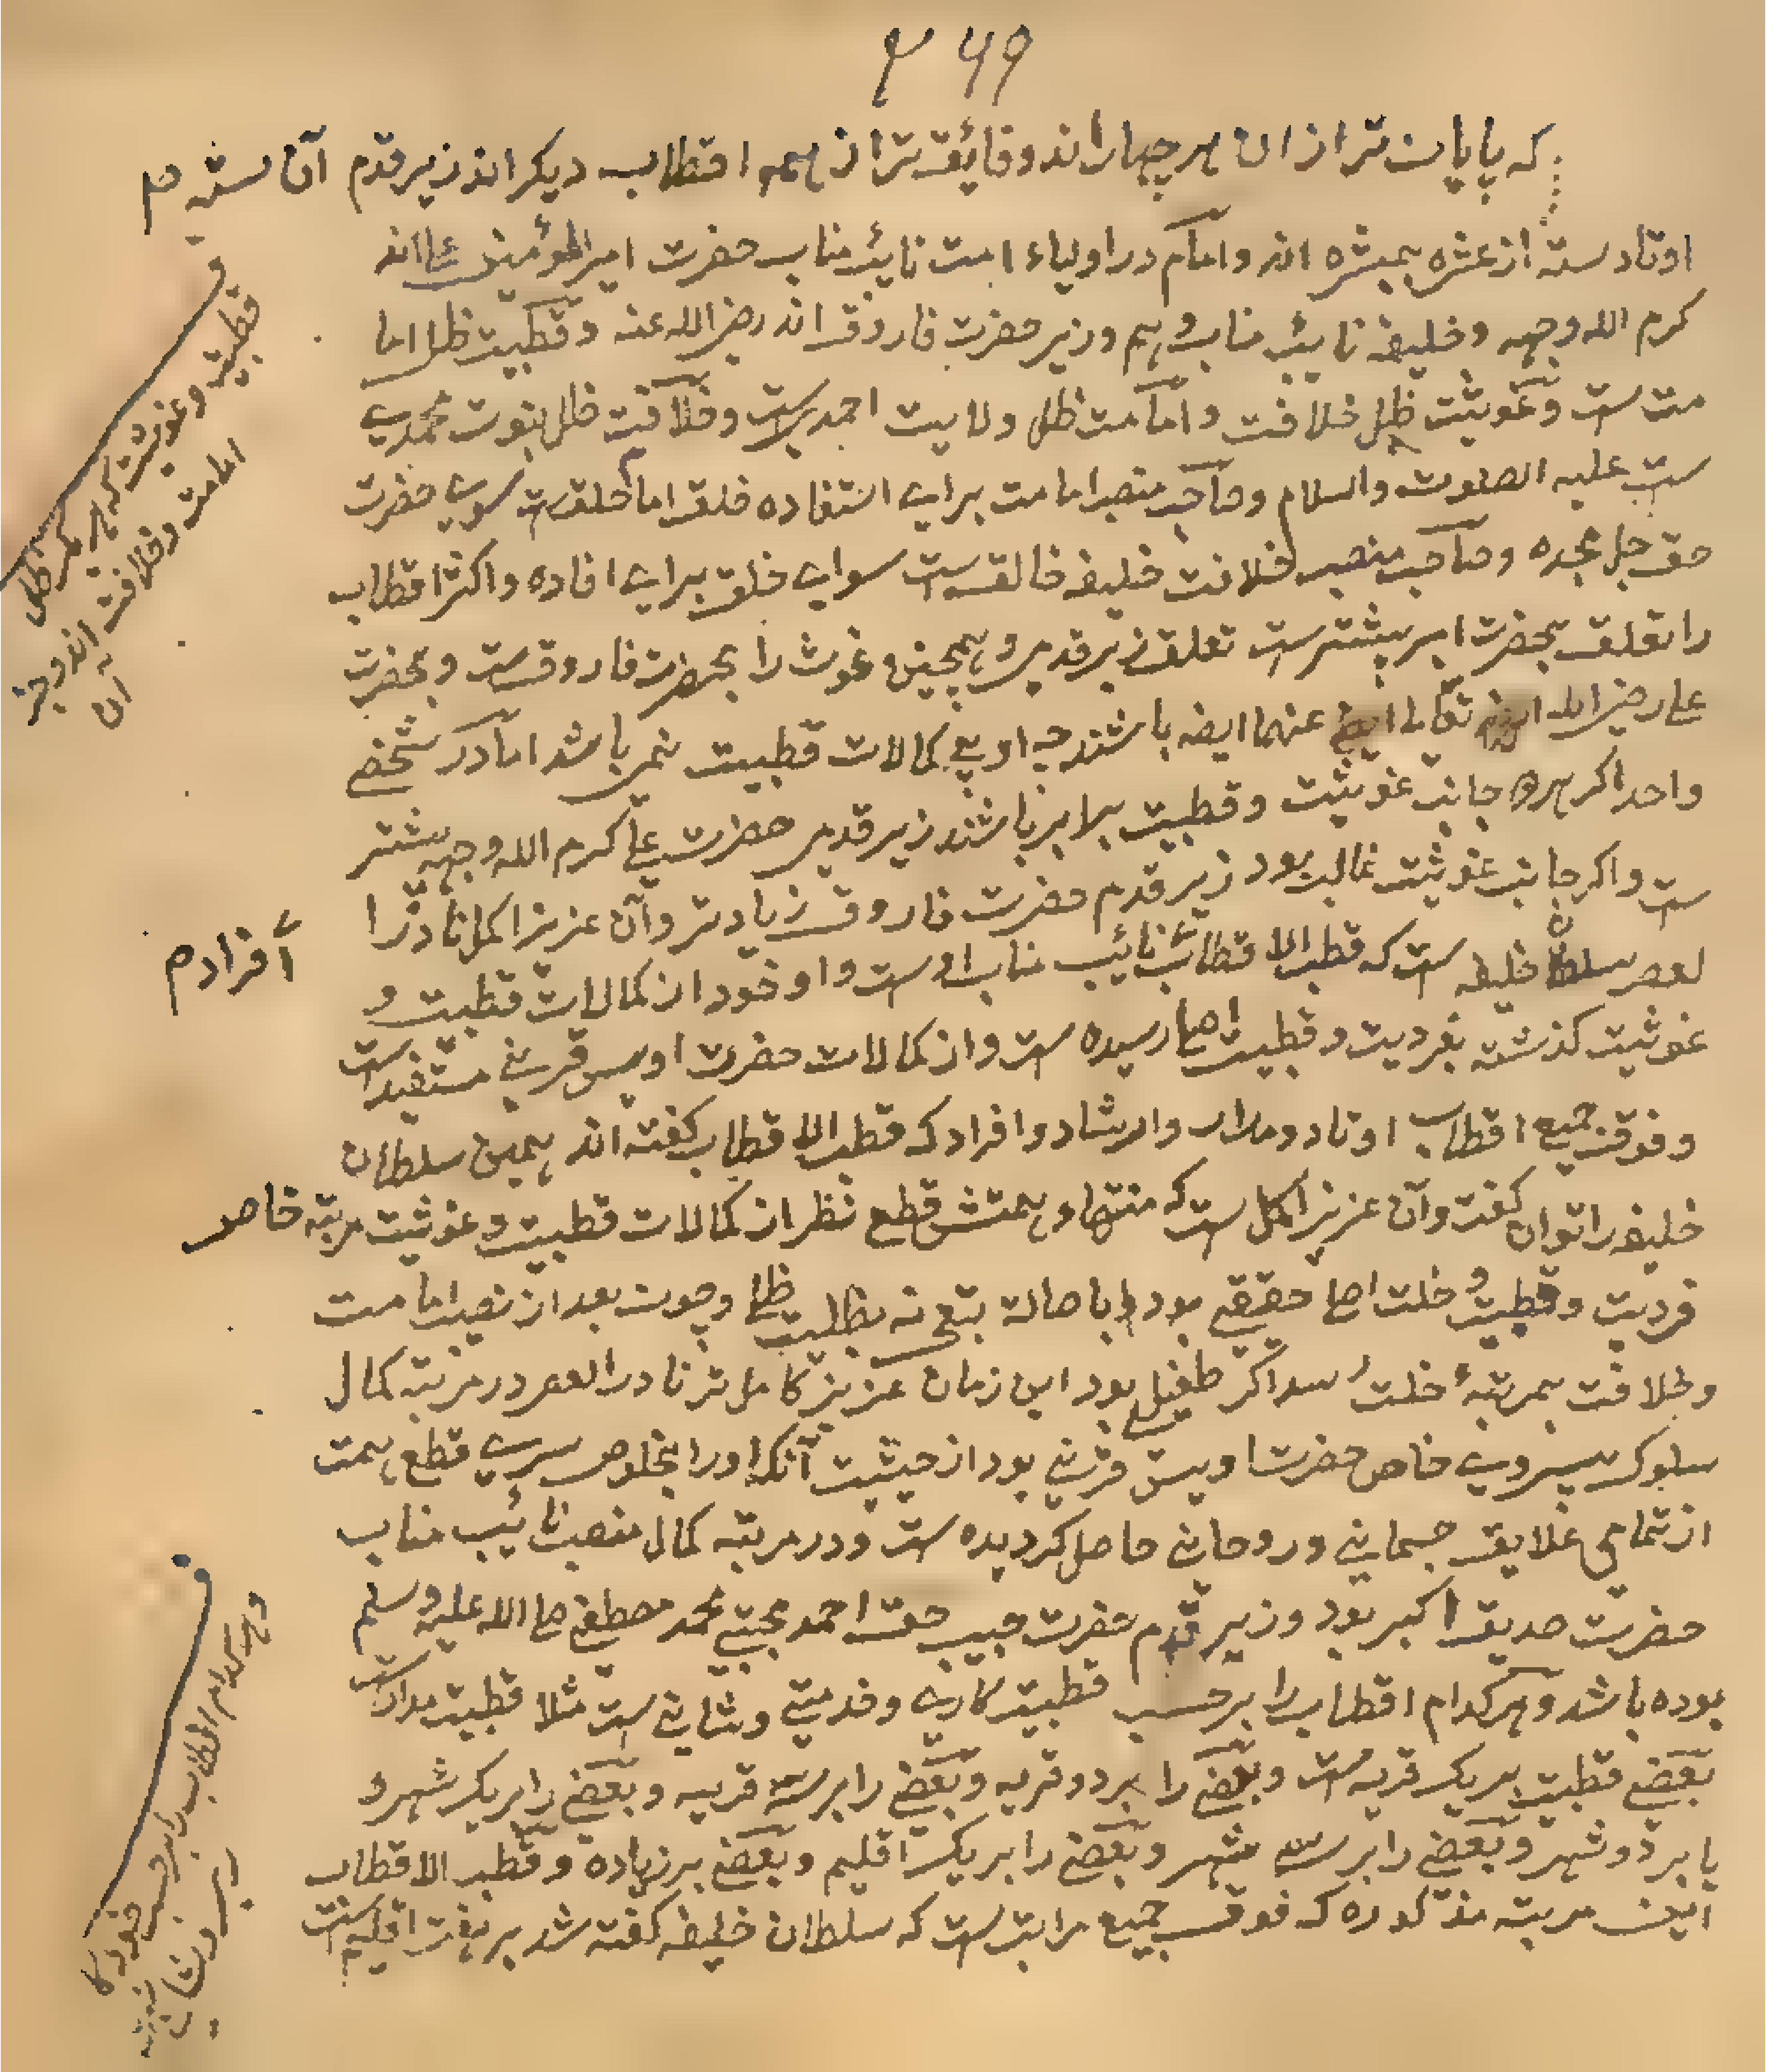 ۴۶۹
که پایان تر ازان هر چهار اند و فائق تر از همه اقطاب دیگر اند زیر قدم آن سه م
اوتاد سته از عشره مبشره اند و امام در اولیاء امت نائب مناب حضرت امیر المؤمنین علی اند
کرم الله وجهه و خلیفه نائب مناب و هم وزیر حضرت فاروق اند رضی الله عنه و قطبیت ظل اما
مت ست و غوثیت ظل خلافت و امامت ظل ولایت احمدی ست و خلافت ظل نبوت محمدی
ست علیه الصلوت والسلام و صاحب منصب امامت برای استفاده خلق امام خلق ست سوی حضرت
حق جل مجده و صاحب منصب خلافت خلیفه خالق ست سوای خلق برای افاده و اکثر اقطاب
را تعلق بحضرت امیر بیشتر ست تعلق زیر قدمی و همچنین غوث را بحضرت فاروق ست و بحضرت
علی رضی الله تعالی عنهما ایضه باشند چه او بی کمالات قطبیت نمی باشد اما در شخصی
واحد اکر هر دو جانب غوثیت و قطبیت برابر باشند زیر قدمی حضرت علی کرم الله وجهه بیشتر
ست و اکر جانب غوثیت غالب بود زیر قدم حضرت فاروق زیادتر و آن عزیز اکمل نادر ا
لعصر سلطان خلیفه ست که قطب الاقطاب نائب مناب اوست و او خود از کمالات قطبیت و
غوثیت کذشته بفردیت و قطبیت اصلی رسیده ست و از کمالات حضرت اویس قرنی مستفید است
و فوق جمیع اقطاب اوتاد و مدار و ارشاد و افراد که قطب الاقطاب کفته اند همین سلطان
خلیفه را توان کفت و آن عزیز اکمل ست که منتهاو همتش قطع نظر از کمالات قطبیت و غوثیت مرتبه خاص
فردیت و قطبیت و خلت اصلی حقیقی بود باصاله بتبعی نه بظلیت ظلی و چون بعد از نصب امامت
و خلافت بمرتبهٔ خلت رسد اکر طفیلی بود این زمان عزیز کامل تر نادر العصر در مرتبه کمال
سلوک پیروی خاص حضرت اویس قرنی بود از حیثیت آنکه او را بخلوص سری قطع همت
از تمامی علایق جسمانی و روحانی حاصل کردیده ست و در مرتبه کمال منصب نائب مناب
حضرت صدیق اکبر بود و زیر قدم حضرت حبیب حق احمد مجتبی محمد مصطفی صلی الله علیه و سلم
بوده باشد و هر کدام اقطاب را بر حسب قطبیت کاری و خدمتی و شانی ست مثلا قطبیت مدار ست
بعضی قطبیت بر یک قریه ست و بعضی را بر دو قریه و بعضی را بر سه قریه و بعضی را بر یک شهر و
یا بر دو شهر و بعضی را بر سه شهر و بعضی را بر یک اقلیم و بعضی بر زیاده و قطب الاقطاب
این مرتبه مذکوره که فوق جمیع مراتب ست که سلطان خلیفه کفته شد بر هفت اقلیم ست
قطبیت و غوثیت که هر یکی ظل
امامت و خلافت اند و جز
آن
افراد م
و هر کدام اقطاب را بر حسب خود کا
ری و شانی